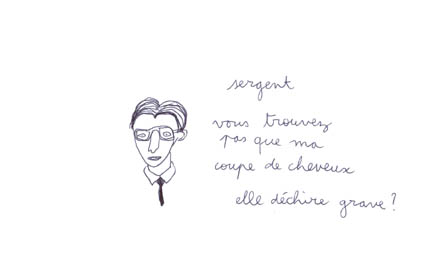 sergent
vous trouvez
pas que ma
coupe de cheveux
elle déchire grave ?